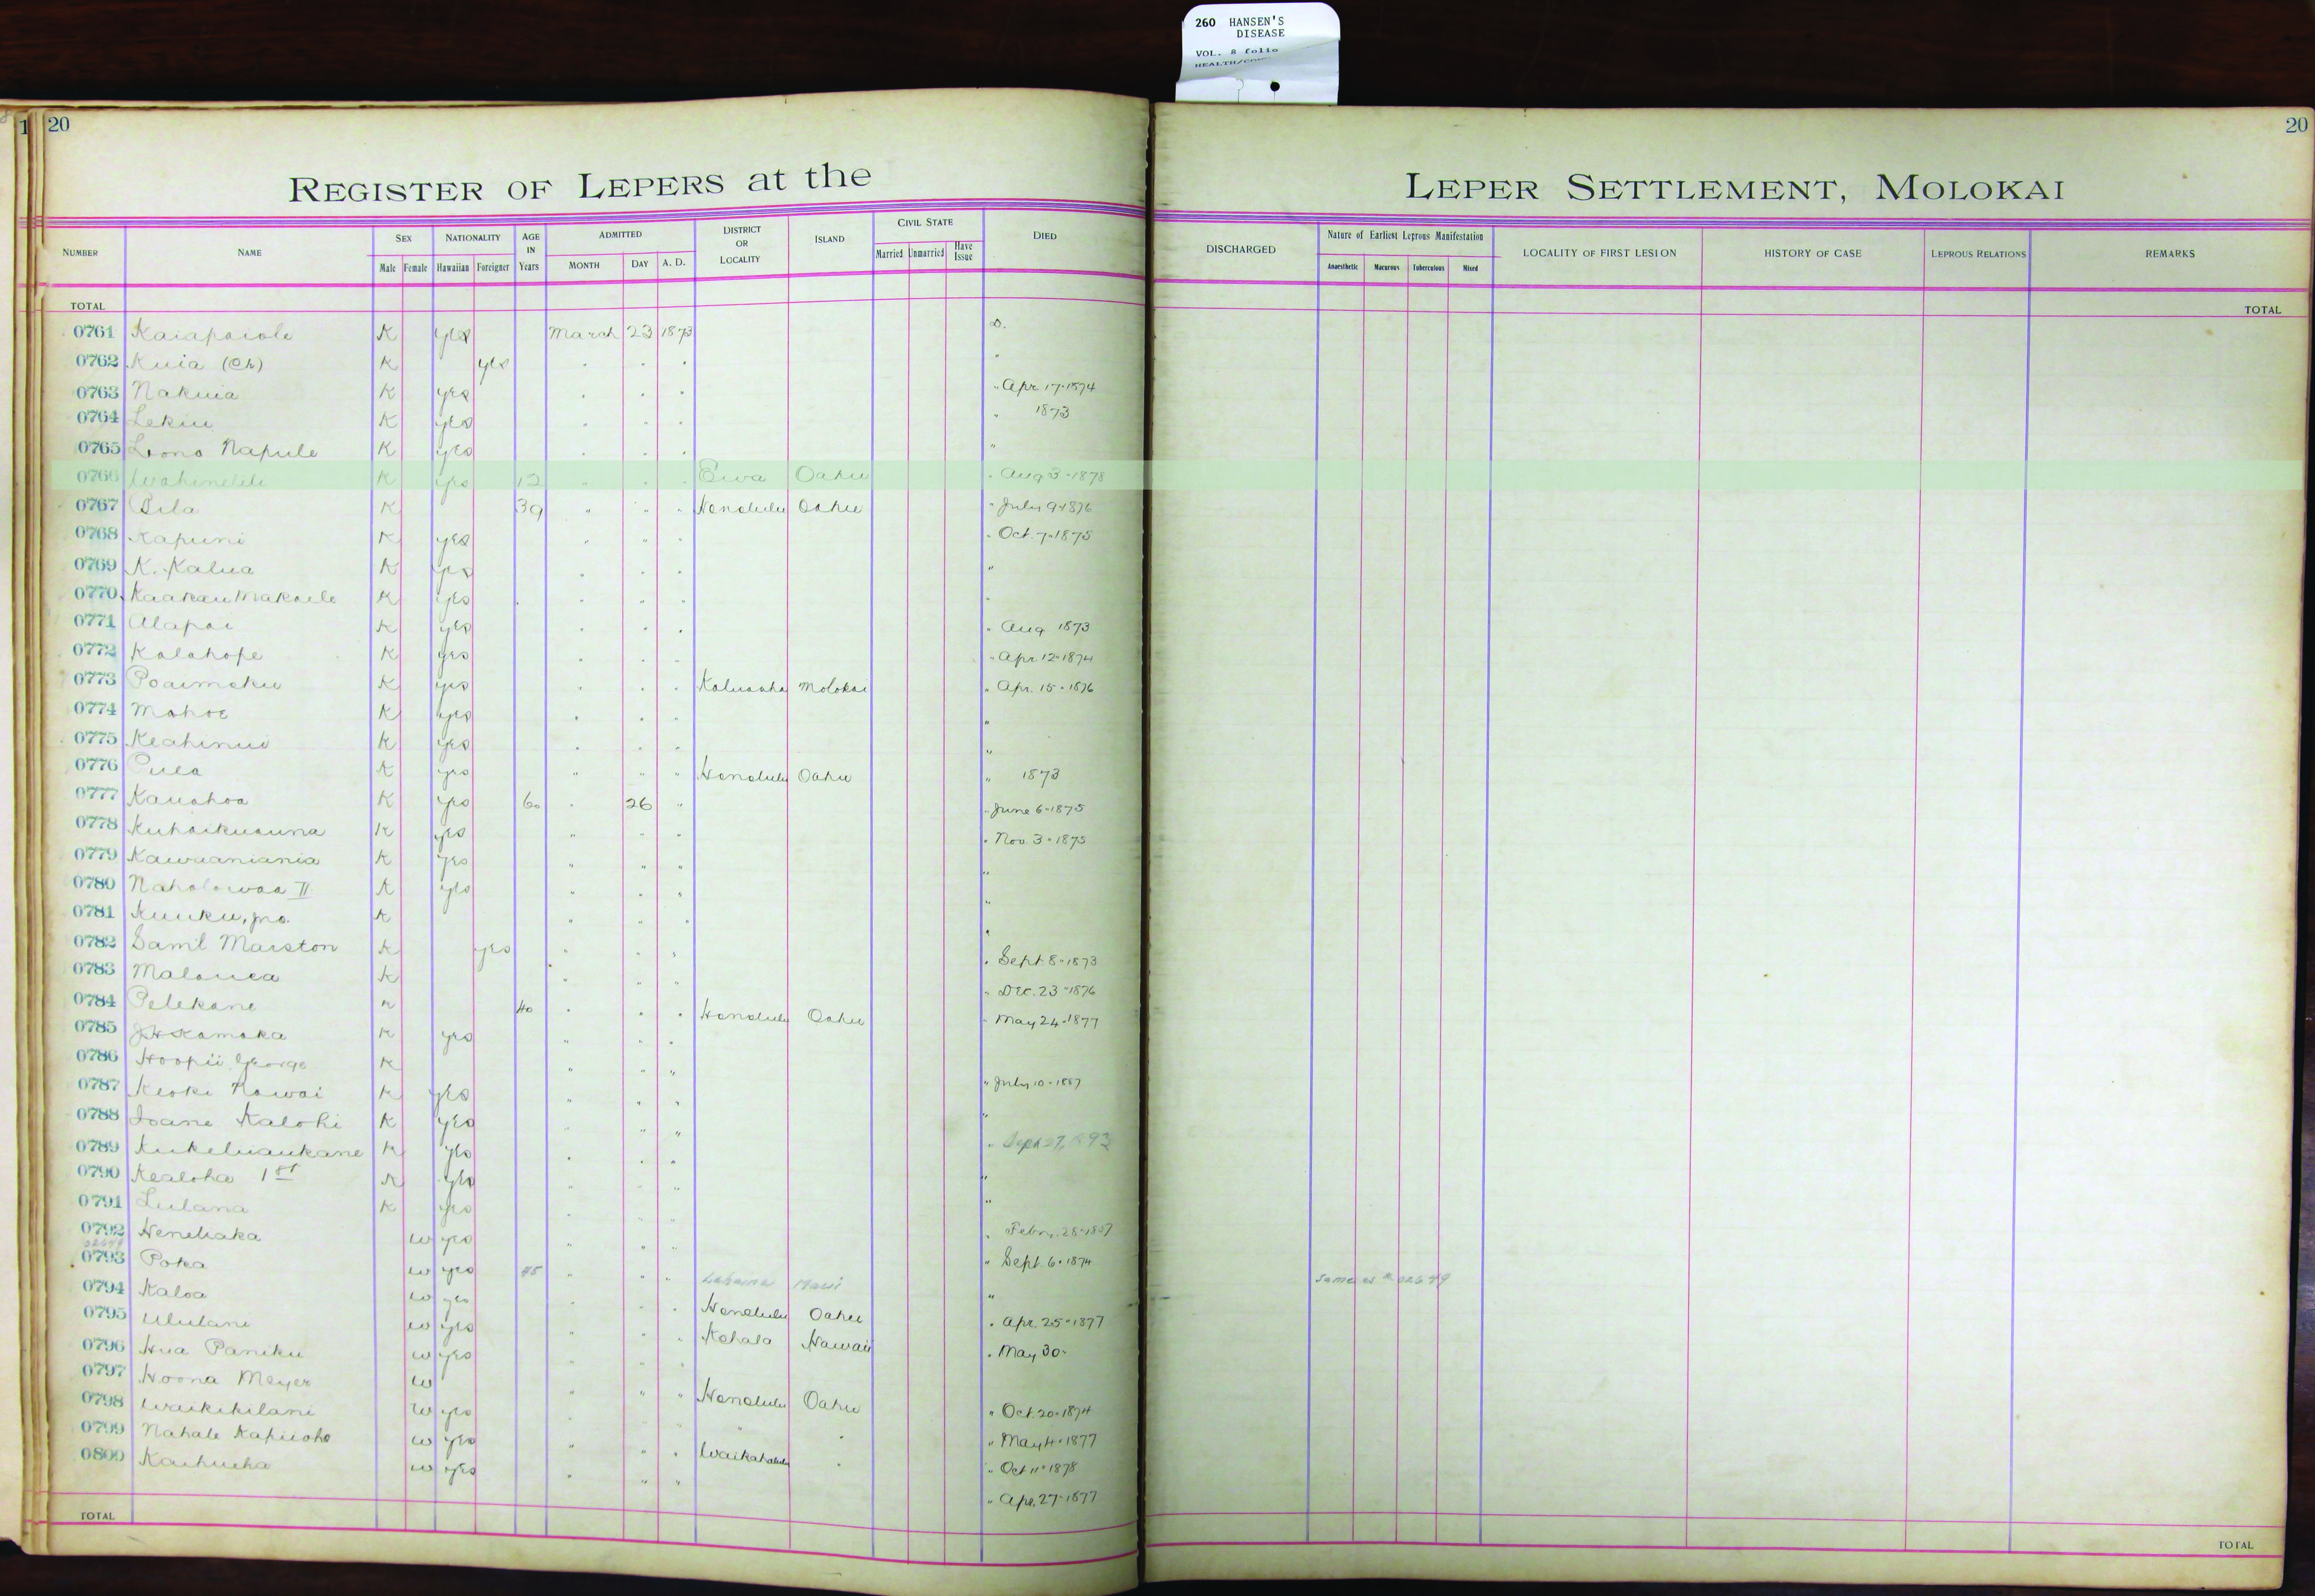 260 HANSEN'S
DISEASE
VOL. 8 folio
20
20
REGISTER OF LEPERS at the
LEPER SETTLEMENT, MOLOKAI
NUMBER NAME SEX Male Female NATIONALITY Hawaiian Foreigner AGE IN Years ADMITTED MONTH DAY A. D. DISTRICT OR LOCALITY ISLAND CIVIL STATE Married Unmarried Have Issue DIED
DISCHARGED Nature of Earliest Leprous Manifestation Anaesthetic Macurous Tuberculous Mixed LOCALITY OF FIRST LESION HISTORY OF CASE LEPROUS RELATIONS REMARKS
TOTAL TOTAL
0761 Kaiapaiole K yes March 23 1873 D.
0762 Kuia (Ch) K yes . . . "
0763 Nakuia K yes . . . " Apr. 17-1874
0764 Lekiu K yes . . . " 1873
0765 Lono Napule K yes . . . "
0766 K yes 12 . . . Ewa Oahu " Aug 3-1878
0767 Pila K 39 " " " Honolulu Oahu " July 9-1876
0768 Kapuni K yes " " " " Oct. 7-1875
0769 K. Kalua K yes . . . "
0770 K yes . . . "
0771 Alapai K yes . . . " Aug 1873
0772 Kalahope K yes . . . " Apr. 12-1874
0773 Poaimoku K yes . . . Molokai " Apr. 15-1876
0774 Mahoe K yes . . . "
0775 Keahinui K yes . . . "
0776 K yes " " " Honolulu Oahu " 1873
0777 Kauahoa K yes 60 " 26 " " June 6-1875
0778 Kuhaikuauna K yes " " " " Nov. 3-1875
0779 Kawaaniania K yes " " " "
0780 Naholowaa II K yes " " " "
0781 Kuuku, jno. K " " " "
0782 Saml Marston K yes " " " " Sept 8-1873
0783 K " " " " Dec. 23-1876
0784 Pelekane K 40 " " " Honolulu Oahu " May 24-1877
0785 J.H. Kamaka K yes " " "
0786 Hoopii, George K " " " " July 10-1887
0787 Keoki Nawai K yes " " " "
0788 Ioane Kalohi K yes " " "
0789 Kukeluaukane K yes " " "
0790 Kealoha 1st K yes " " " "
0791 Lulana K yes " " "
0792 w yes " " " " Sept. 6-1874
0793 Poka w yes 45 " " " Lahaina Maui " Same as # 02649
0794 Kaloa w yes " " " Honolulu Oahu " Apr. 25-1877
0795 Ululani w yes " " " Kohala Hawaii " May 30-
0796 Hua Paniku w yes " " "
0797 Hoona Meyer w " " " Honolulu Oahu " Oct. 20-1874
0798 Waikikilani w yes " " " " " May 4-1877
0799 Nahale Kapuoho w yes " " " " Oct 11-1878
0800 Kaihueha w yes " " " " Apr. 27-1877
TOTAL TOTAL